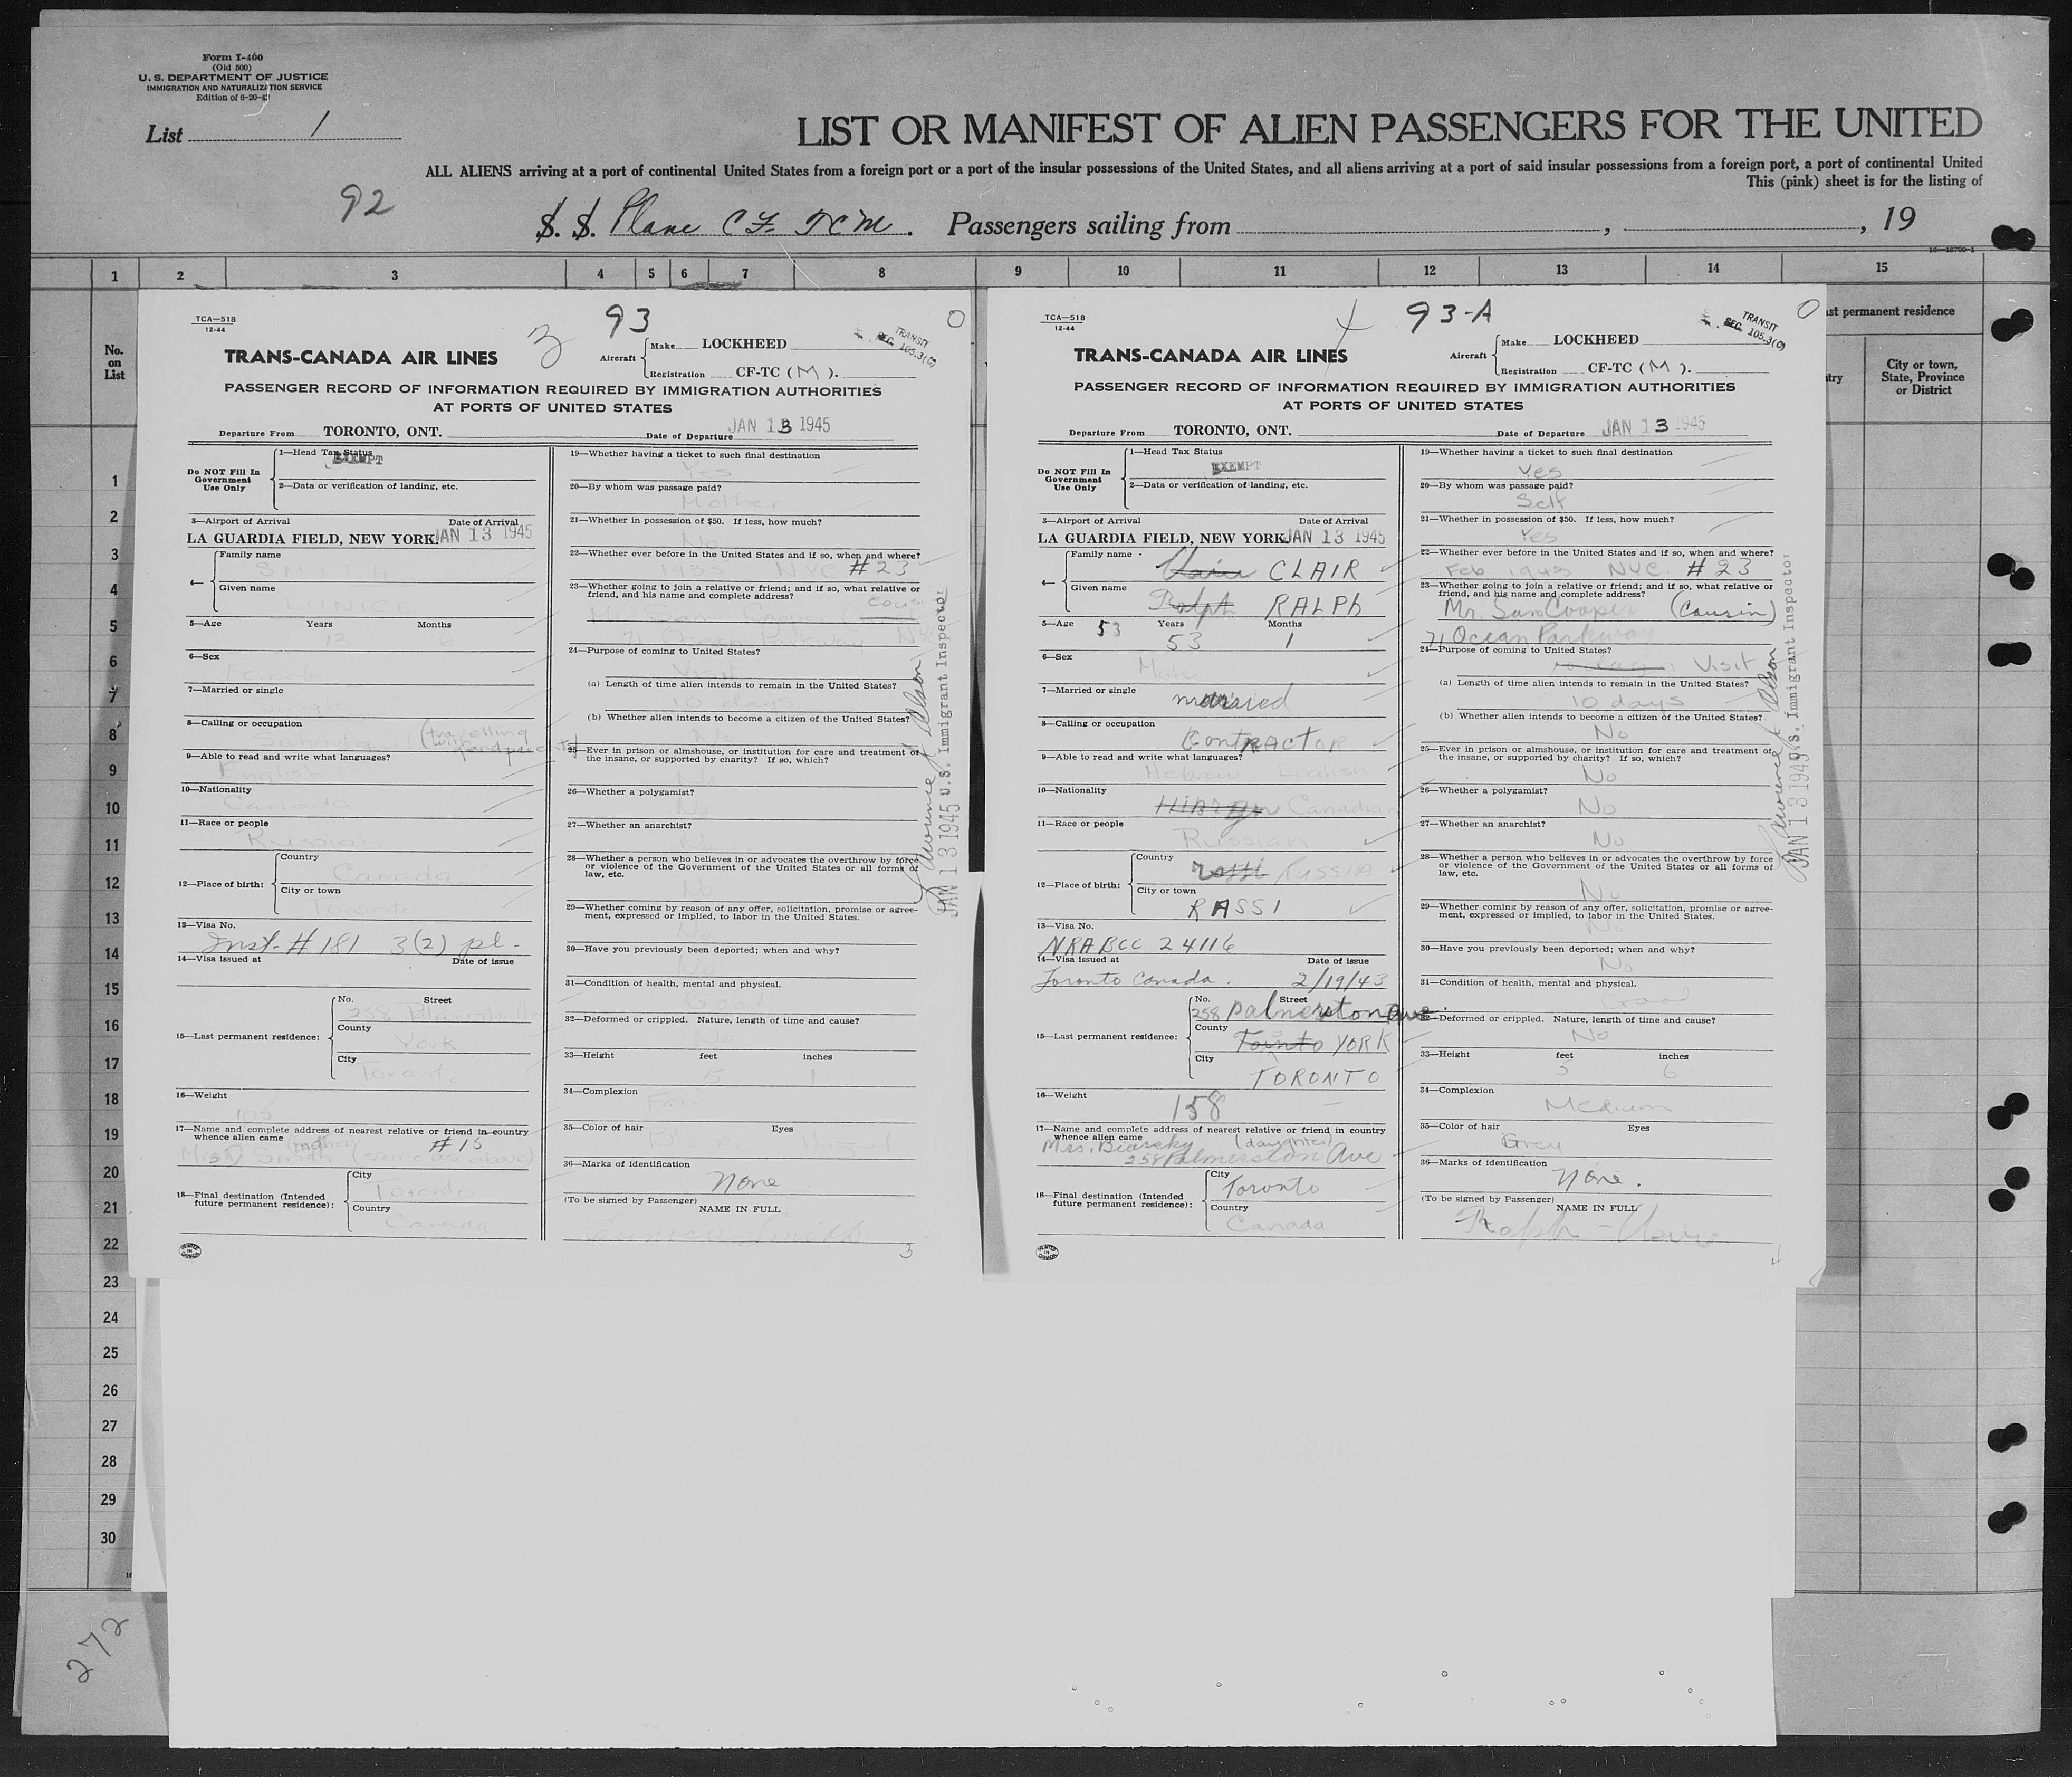 Form I-400
(Old 500)
U. S. DEPARTMENT OF JUSTICE
IMMIGRATION AND NATURALIZATION SERVICE
Edition of 6-20-
List 1
LIST OR MANIFEST OF ALIEN PASSENGERS FOR THE UNITED
ALL ALIENS arriving at a port of continental United States from a foreign port or a port of the insular possessions of the United States, and all aliens arriving at a port of said insular possessions from a foreign port, a port of continental United
This (pink) sheet is for the listing of
92
S. S. Plane CF TCM. Passengers sailing from , , 19
16—18700-1
1 2 3 4 5 6 7 8 9 10 11 12 13 14 15
No. on List
st permanent residence
try
City or town, State, Province or District
1
2
3
4
5
6
7
8
9
10
11
12
13
14
15
16
17
18
19
20
21
22
23
24
25
26
27
28
29
30
272
TCA—518
12-44
3
93
TRANSIT
SEC. 105.3(C)
TRANS-CANADA AIR LINES
Aircraft
Make LOCKHEED
Registration CF-TC (M).
PASSENGER RECORD OF INFORMATION REQUIRED BY IMMIGRATION AUTHORITIES
AT PORTS OF UNITED STATES
Departure From TORONTO, ONT.
Date of Departure JAN 13 1945
Do NOT Fill In Government Use Only
1—Head Tax Status
EXEMPT
2—Data or verification of landing, etc.
3—Airport of Arrival Date of Arrival
LA GUARDIA FIELD, NEW YORK. JAN 13 1945
4—
Family name
SMITH
Given name
EUNICE
5—Age Years Months
13
6—Sex
Female
7—Married or single
Single
8—Calling or occupation
(travelling with grandparents)
9—Able to read and write what languages?
English
10—Nationality
Canada
11—Race or people
Russian
12—Place of birth:
Country
Canada
City or town
Toronto
13—Visa No.
Inst. # 181 3(2) pl.
14—Visa issued at Date of issue
15—Last permanent residence:
No. Street
258 Palmerston Av
County
York
City
Toronto
16—Weight
105
17—Name and complete address of nearest relative or friend in country whence alien came
(mother) # 15
Smith (same as above)
18—Final destination (Intended future permanent residence):
City
Toronto
Country
Canada
19—Whether having a ticket to such final destination
Yes
20—By whom was passage paid?
Mother
21—Whether in possession of $50. If less, how much?
No
22—Whether ever before in the United States and if so, when and where?
NYC # 23
23—Whether going to join a relative or friend; and if so, what relative or friend, and his name and complete address?
71 Ocean Parkway
24—Purpose of coming to United States?
Visit
(a) Length of time alien intends to remain in the United States?
10 days
(b) Whether alien intends to become a citizen of the United States?
No
25—Ever in prison or almshouse, or institution for care and treatment of the insane, or supported by charity? If so, which?
No
26—Whether a polygamist?
No
27—Whether an anarchist?
No
28—Whether a person who believes in or advocates the overthrow by force or violence of the Government of the United States or all forms of law, etc.
No
29—Whether coming by reason of any offer, solicitation, promise or agreement, expressed or implied, to labor in the United States.
No
30—Have you previously been deported; when and why?
No
31—Condition of health, mental and physical.
Good
32—Deformed or crippled. Nature, length of time and cause?
No
33—Height feet inches
5 1
34—Complexion
Fair
35—Color of hair Eyes
36—Marks of identification
None
(To be signed by Passenger)
NAME IN FULL
Eunice Smith
3
JAN 13 1945 U.S. Immigrant Inspector
TCA—518
12-44
93-A
TRANSIT
SEC. 105.3(C)
TRANS-CANADA AIR LINES
Aircraft
Make LOCKHEED
Registration CF-TC (M).
PASSENGER RECORD OF INFORMATION REQUIRED BY IMMIGRATION AUTHORITIES
AT PORTS OF UNITED STATES
Departure From TORONTO, ONT.
Date of Departure JAN 13 1945
Do NOT Fill In Government Use Only
1—Head Tax Status
EXEMPT
2—Data or verification of landing, etc.
3—Airport of Arrival Date of Arrival
LA GUARDIA FIELD, NEW YORK. JAN 13 1945
4—
Family name
CLAIR
Given name
Ralph RALPh
5—Age Years Months
53 53 1
6—Sex
Male
7—Married or single
married
8—Calling or occupation
CONTRACTOR
9—Able to read and write what languages?
Hebrew English
10—Nationality
Canadian
11—Race or people
Russian
12—Place of birth:
Country
RUSSIA
City or town
RASSI
13—Visa No.
NRABCC 24116
14—Visa issued at Date of issue
Toronto Canada. 2/19/43
15—Last permanent residence:
No. Street
258 Palmerston Ave.
County
Toronto YORK
City
TORONTO
16—Weight
158
17—Name and complete address of nearest relative or friend in country whence alien came
Mrs. (daughter)
258 Palmerston Ave
18—Final destination (Intended future permanent residence):
City
Toronto
Country
Canada
19—Whether having a ticket to such final destination
Yes
20—By whom was passage paid?
Self
21—Whether in possession of $50. If less, how much?
Yes
22—Whether ever before in the United States and if so, when and where?
Feb. 1943 NYC. # 23
23—Whether going to join a relative or friend; and if so, what relative or friend, and his name and complete address?
Mr. Sam Cooper (Cousin)
71 Ocean Parkway
24—Purpose of coming to United States?
Visit
(a) Length of time alien intends to remain in the United States?
10 days
(b) Whether alien intends to become a citizen of the United States?
No
25—Ever in prison or almshouse, or institution for care and treatment of the insane, or supported by charity? If so, which?
No
26—Whether a polygamist?
No
27—Whether an anarchist?
No
28—Whether a person who believes in or advocates the overthrow by force or violence of the Government of the United States or all forms of law, etc.
No
29—Whether coming by reason of any offer, solicitation, promise or agreement, expressed or implied, to labor in the United States.
No
30—Have you previously been deported; when and why?
No
31—Condition of health, mental and physical.
Good
32—Deformed or crippled. Nature, length of time and cause?
No
33—Height feet inches
5 6
34—Complexion
Medium
35—Color of hair Eyes
Grey
36—Marks of identification
None.
(To be signed by Passenger)
NAME IN FULL
Ralph
4
JAN 13 1945 U.S. Immigrant Inspector